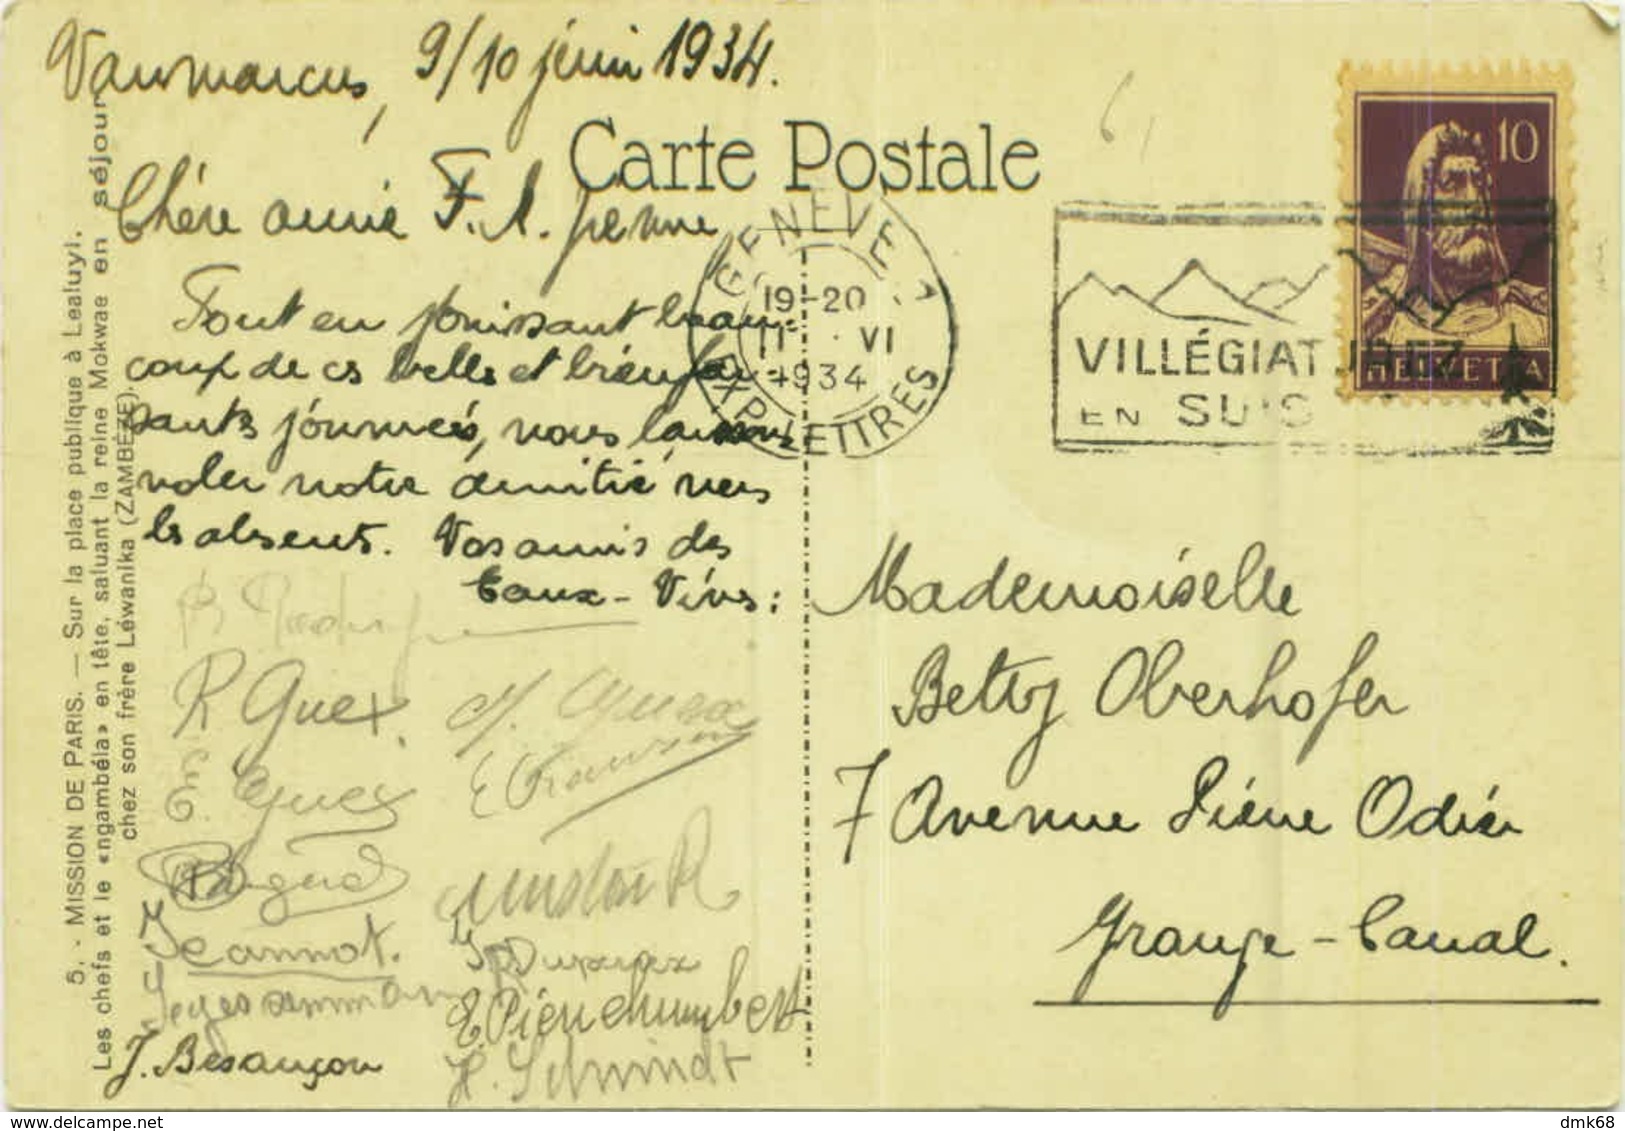 Vaumarcus, 9/10 juin 1934.
Carte Postale
Chère amie
Tout en jouissant beau-
coup de ces belles et bienfai-
santes journées, nous laissons
voler notre amitié vers
les absents. Vos amis des
Eaux-Vives:
R Guex.
E. Guex
Jeannot.
J. Besançon
E. Pierrehumbert
H. Schmidt
5. - MISSION DE PARIS. — Sur la place publique à Lealuyi.
Les chefs et le «ngambéla» en tête, saluant la reine Mokwae en séjour
chez son frère Léwanika (ZAMBÈZE).
GENÈVE
19-20
11 . VI
1934
EXP. LETTRES
VILLÉGIATUREZ
EN SUIS
10
HELVETIA
Mademoiselle
Betty Oberhofer
7 Avenue Pierre Odier
Grange-Canal.
dmk68